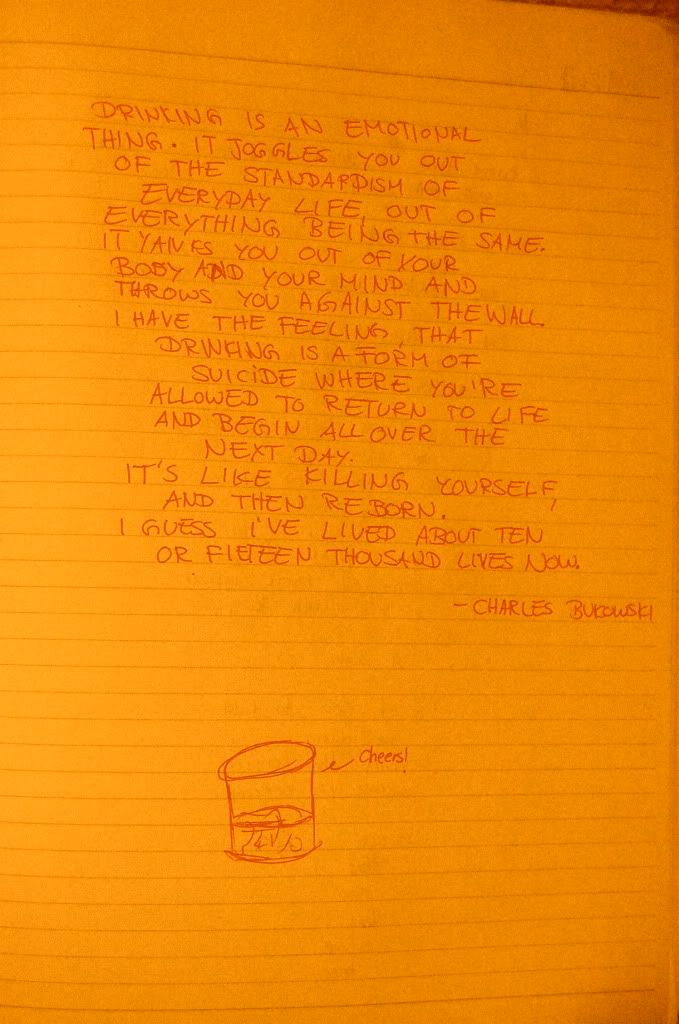 DRINKING IS AN EMOTIONAL
THING. IT JOGGLES YOU OUT
OF THE STANDARDISM OF
EVERYDAY LIFE, OUT OF
EVERYTHING BEING THE SAME.
IT YANKS YOU OUT OF YOUR
BODY AND YOUR MIND AND
THROWS YOU AGAINST THE WALL.
I HAVE THE FEELING, THAT
DRINKING IS A FORM OF
SUICIDE WHERE YOU'RE
ALLOWED TO RETURN TO LIFE
AND BEGIN ALL OVER THE
NEXT DAY.
IT'S LIKE KILLING YOURSELF,
AND THEN REBORN.
I GUESS I'VE LIVED ABOUT TEN
OR FIFTEEN THOUSAND LIVES NOW.
- CHARLES BUKOWSKI
Cheers!